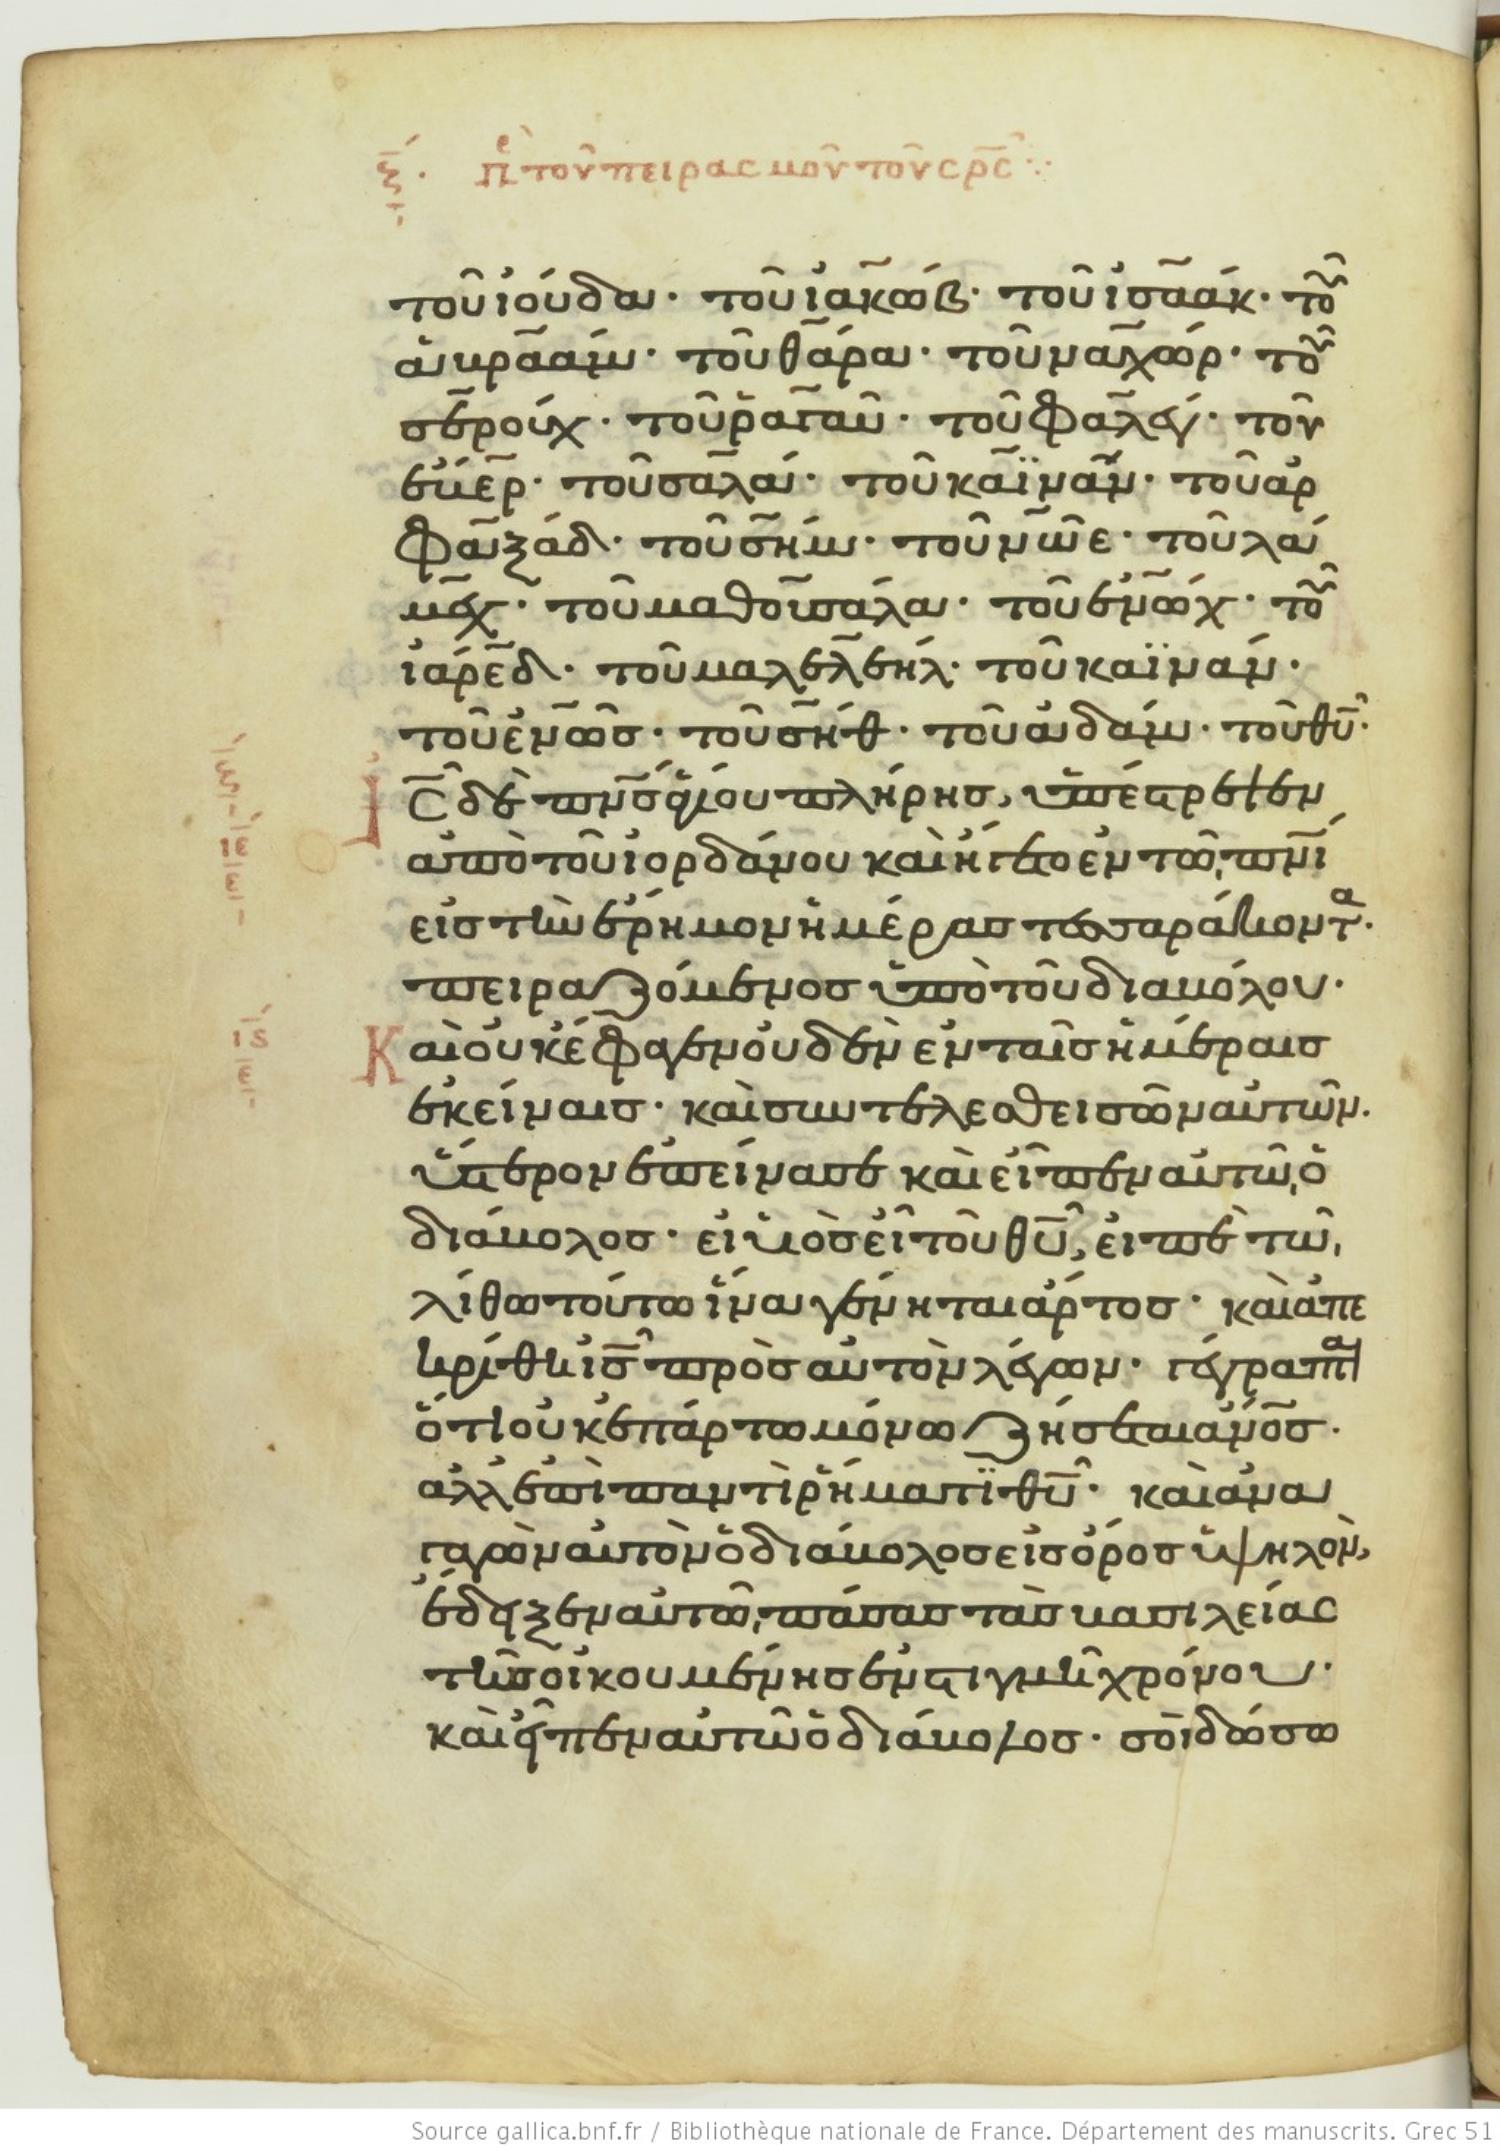 ξ. πε τοῦ πειρασμοῦ τοῦ σρς
τοῦ ἰούδα· τοῦ ἰακώβ· τοῦ ἰσαάκ· τοῦ
ἀβραάμ· τοῦ θάρα· τοῦ ναχώρ· τοῦ
σερούχ· τοῦ ῥαγαῦ· τοῦ φαλέγ· τοῦ
ἔβερ· τοῦ σαλά· τοῦ καϊνάν· τοῦ ἀρ
φαξάδ· τοῦ σήμ· τοῦ νῶε· τοῦ λά
μεχ· τοῦ μαθουσάλα· τοῦ ἐνώχ· τοῦ
ἰάρεδ· τοῦ μαλελεήλ· τοῦ καϊνάν·
τοῦ ἐνῶς· τοῦ σήθ· τοῦ ἀδάμ· τοῦ θυ·
Ις δὲ πνς ἁγίου πλήρης, ὑπέστρεψεν
ἀπὸ τοῦ ἰορδάνου καὶ ἤγετο ἐν τῶ πνι
εἰς τὴν ἔρημον ἡμέρας τεσσαράκοντα·
πειραζόμενος ὑπὸ τοῦ διαβόλου·
Καὶ οὐκ ἔφαγεν οὐδὲν ἐν ταῖς ἡμέραις
ἐκείναις· καὶ συντελεσθεισῶν αὐτῶν·
ὕστερον ἐπείνασε καὶ εἶπεν αὐτῶ ὁ
διάβολος· εἰ υἱὸς εἶ τοῦ θυ, εἰπὲ τῶ
λίθω τούτω ἵνα γένηται ἄρτος· καὶ ἀπε
κρίθη ις πρὸς αὐτὸν λέγων· γέγραπται
ὅτι οὐκ ἐπ ἄρτω μόνω ζήσεται ἄνος·
ἀλλ ἐπὶ παντὶ ῥήματι θυ· καὶ ἀνα
γαγὼν αὐτὸν ὁ διάβολος εἰς ὄρος ὑψηλὸν,
ἔδειξεν αὐτῶ πάσας τὰς βασιλείας
τῆς οἰκουμένης ἐν στιγμῆ χρόνου·
καὶ εἶπεν αὐτῶ ὁ διάβολος· σοὶ δώσω
Source gallica.bnf.fr / Bibliothèque nationale de France. Département des manuscrits. Grec 51